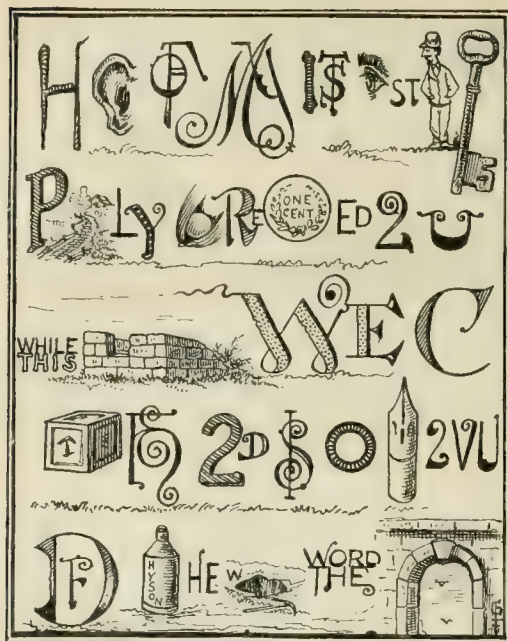 H M ITS ST
P LY RE ONE CENT ED 2 U
WHILE THIS W E C
2D O 2VU
D HYSON HE W WORD THE